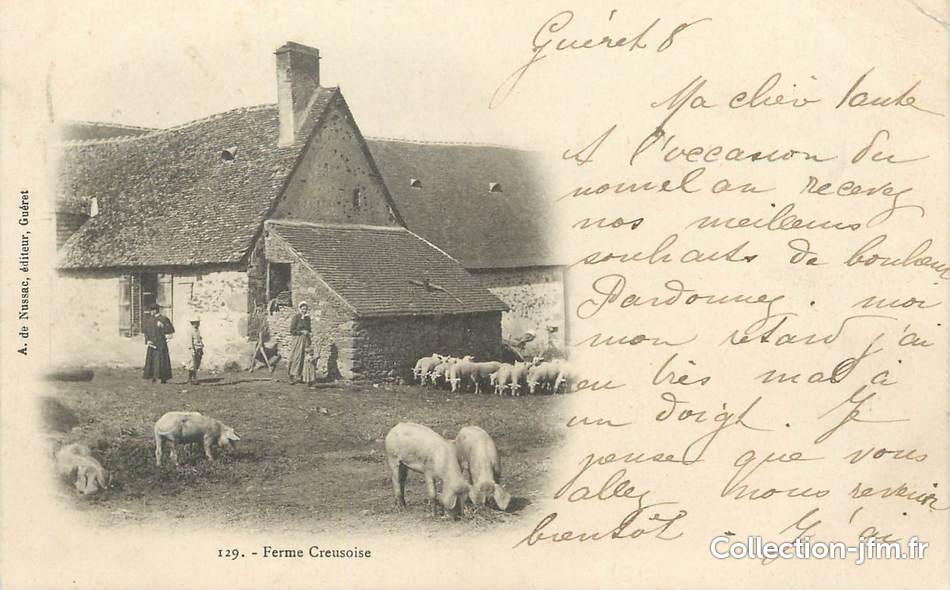 Guéret 8
Ma chèr tante
A l'occasion du
nouvel an recevez
nos meilleurs
souhaits de bonheur
Pardonnez moi
mon retard j'ai
eu très mal à
un doigt. Je
pense que vous
allez nous revenir
bientôt - J'ai
A. de Nussac, éditeur, Guéret
129. - Ferme Creusoise
Collection-jfm.fr